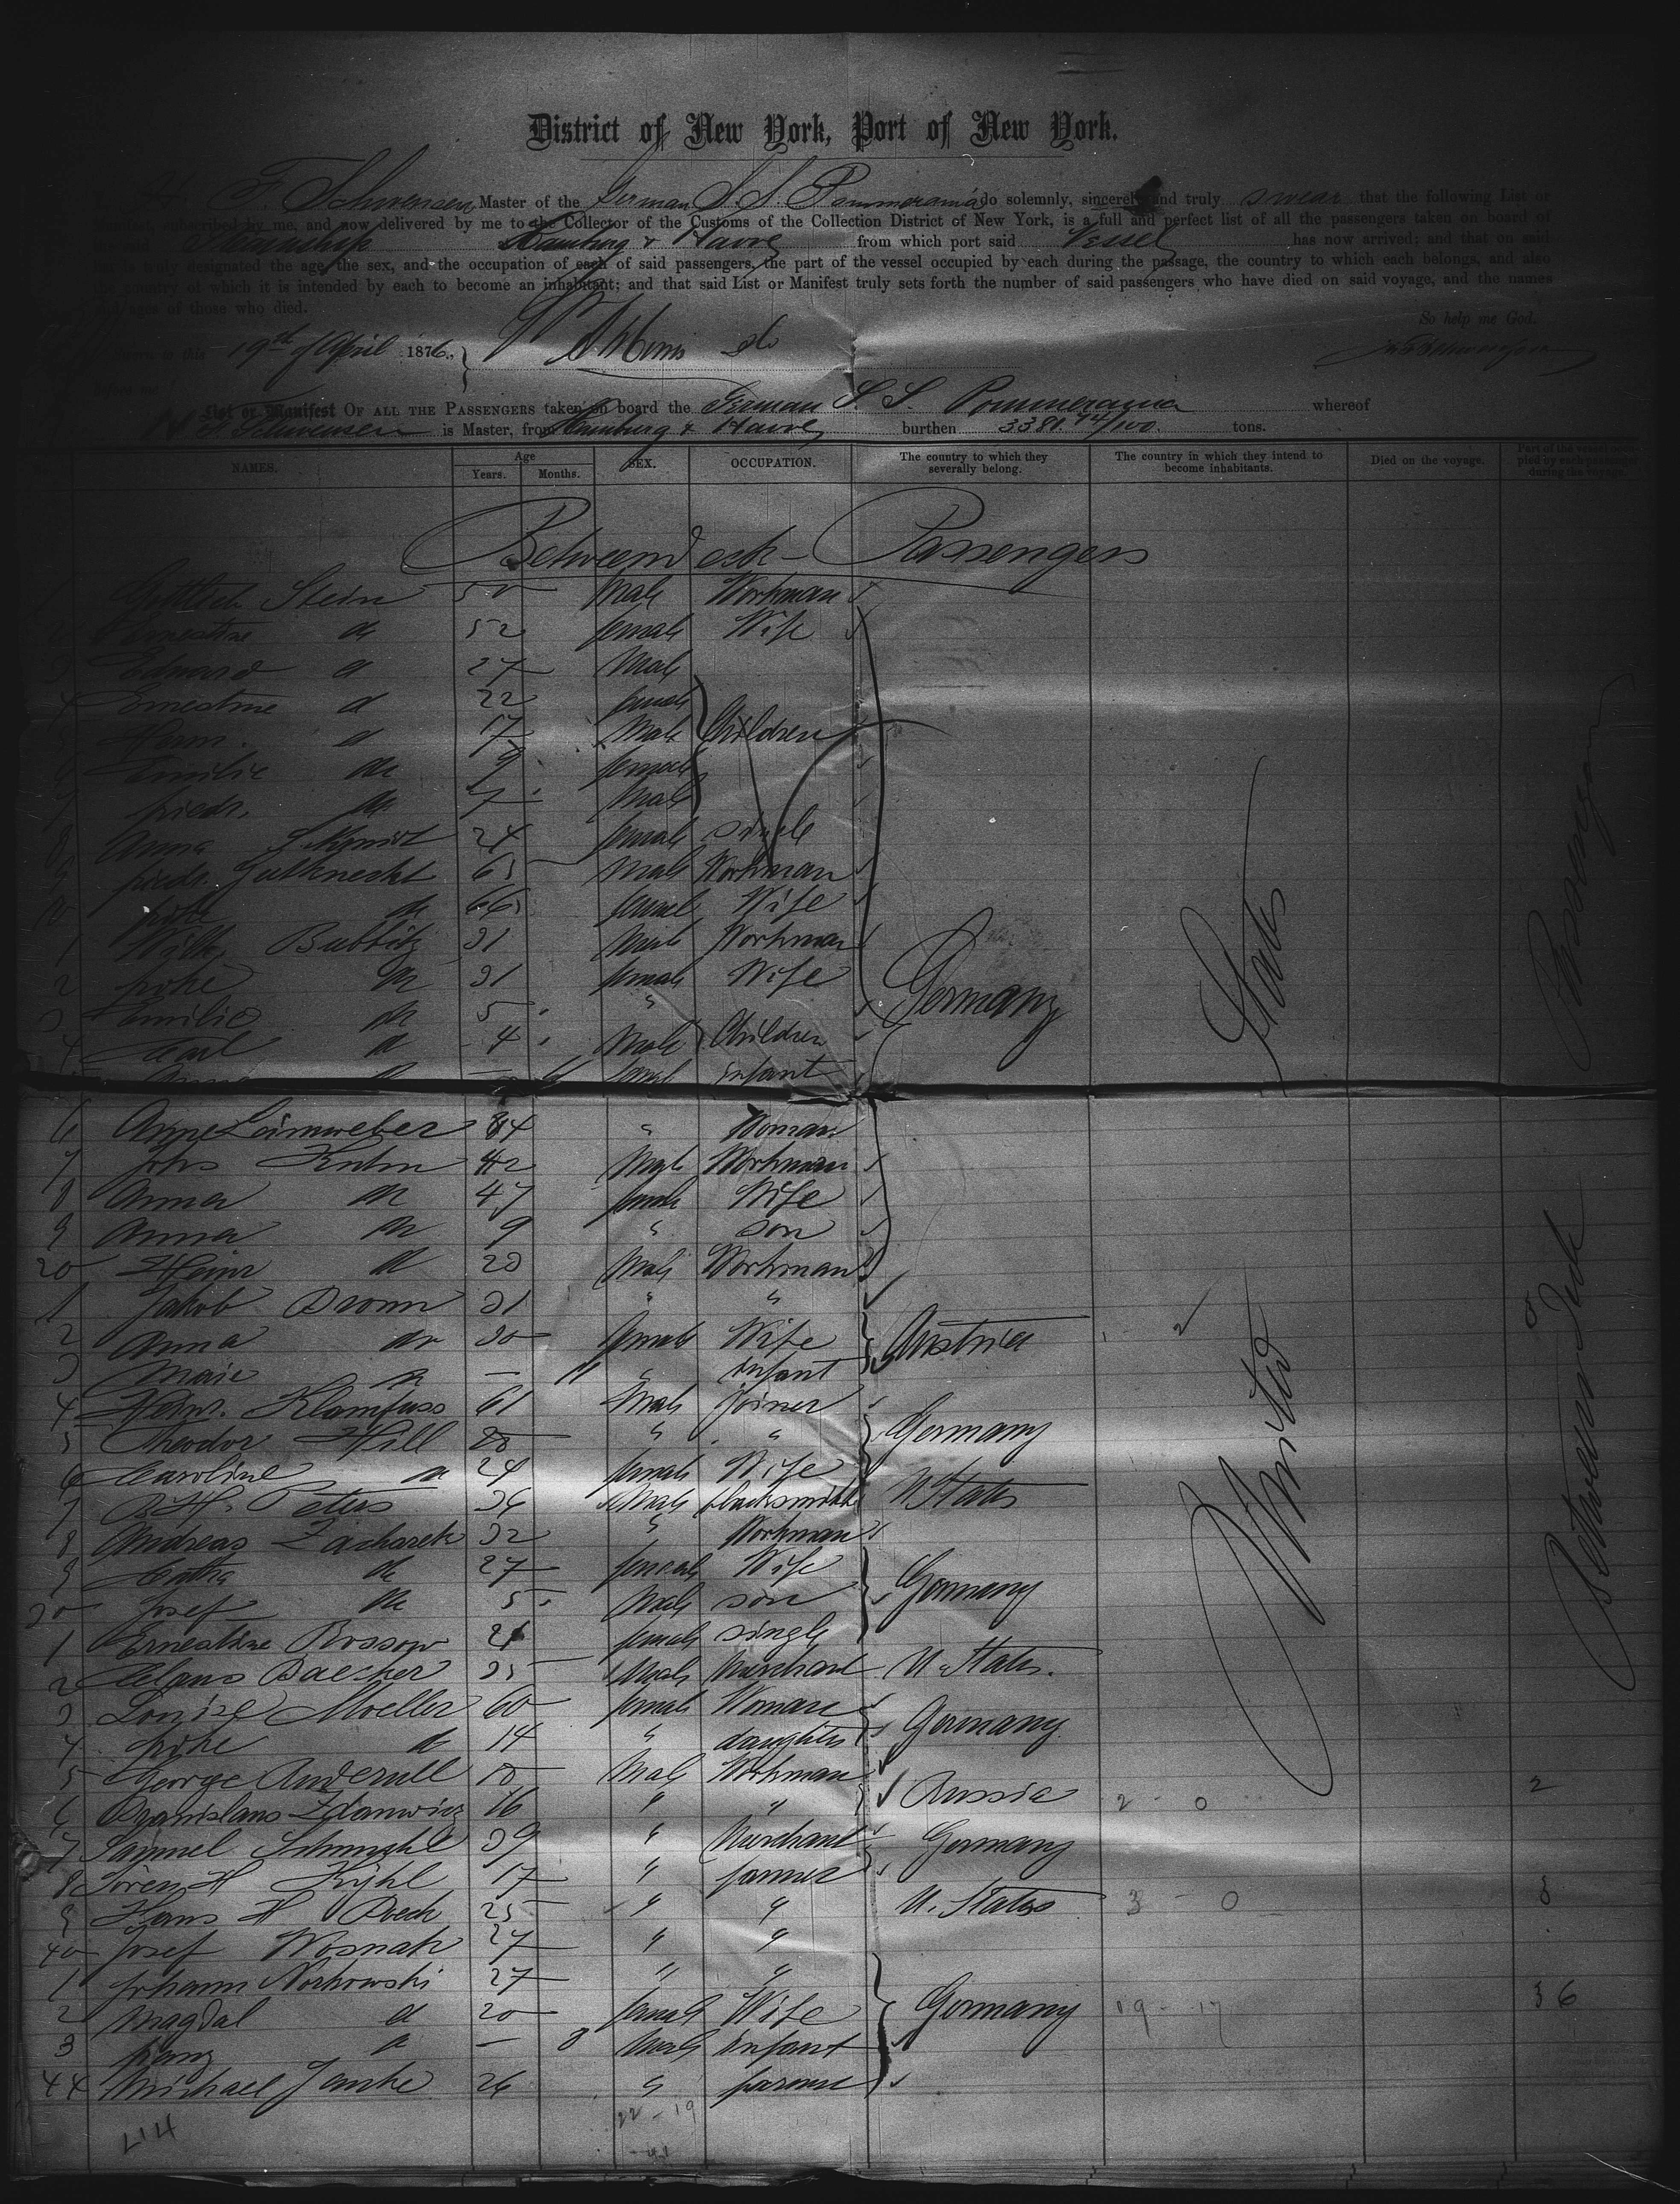 District of New York, Port of New York.
F. Schwensen, Master of the German S. S. Pommerania do solemnly, sincerely and truly swear that the following List or
Manifest, subscribed by me, and now delivered by me to the Collector of the Customs of the Collection District of New York, is a full and perfect list of all the passengers taken on board of
Steamship Hamburg & Havre from which port said Vessel has now arrived: and that on said
list is truly designated the age, the sex, and the occupation of each of said passengers, the part of the vessel occupied by each during the passage, the country to which each belongs, and also
the country of which it is intended by each to become an inhabitant; and that said List or Manifest truly sets forth the number of said passengers who have died on said voyage, and the names
and ages of those who died.
So help me God.
to this 19th of April 1876,
List or Manifest OF ALL THE PASSENGERS taken on board the German S. S. Pommerania whereof
F Schwensen is Master, from Hamburg & Havre burthen 3381.94/100. tons.
NAMES. Age Years. Months. SEX. OCCUPATION. The country to which they severally belong. The country in which they intend to become inhabitants. Died on the voyage. Part of the vessel occupied by each passenger during the voyage.
Betweendeck-Passengers
1 Gottlieb Stein 50 Male Workman
2 Ernestine do 52 female Wife
3 Eduard do 27 Male
4 Ernestine do 22 female
Herm. do 17 Male Children
6 Emilie do 9 female
7 friedr. do 7 Male
8 Anna Schmidt 24 female single
9 friedr. Gutknecht 65 Male Workman
10 frike do 66 female Wife
1 Wilh. Bublitz 31 Male Workman
2 frike do 31 female Wife Germany States
3 Emilie do 5 "
4 Carl do 4 Male Children
Anna do — female Infant
6 Anne Leimweber 84 " Woman
7 Johs Kuhn 42 Male Workman
8 Anna do 47 female Wife
9 Anna do 9 " son
20 Heinr do 20 Male Workman
1 Jakob 31 " "
2 Anna do 30 female Wife Austria
3 Marie do — 11 " Infant
4 Heinr. Klamfuss 61 Male Joiner
5 Theodor Hill 28 " " Germany
6 Caroline do 24 female Wife
7 H. Peters 36 Male blacksmith U States
8 Andreas Zacharek 32 " Workman
9 do 27 female Wife
30 Josef do 5 Male son Germany
1 Ernestine Rossow 21 female single
2 Claus Baecker 35 Male Merchant U. States.
3 Louise Moeller 60 female Woman
4 frike do 14 " daughter Germany
5 George 18 Male Workman
6 16 " " Russia 2 - 0 2
7 Samuel 39 " Merchant Germany
8 Sören H Kyhl 17 " farmer
9 Hans H 25 " " U. States 3 - 0 3
40 Josef Wosnak 27 " "
1 Johann Norkowski 27 " "
2 Magdal do 20 female Wife Germany 19 - 17 36
3 franz do — 8 Male Infant
44 Michael Janke 26 " farmer
United
Between Deck
Passengers
414
22 - 19
41